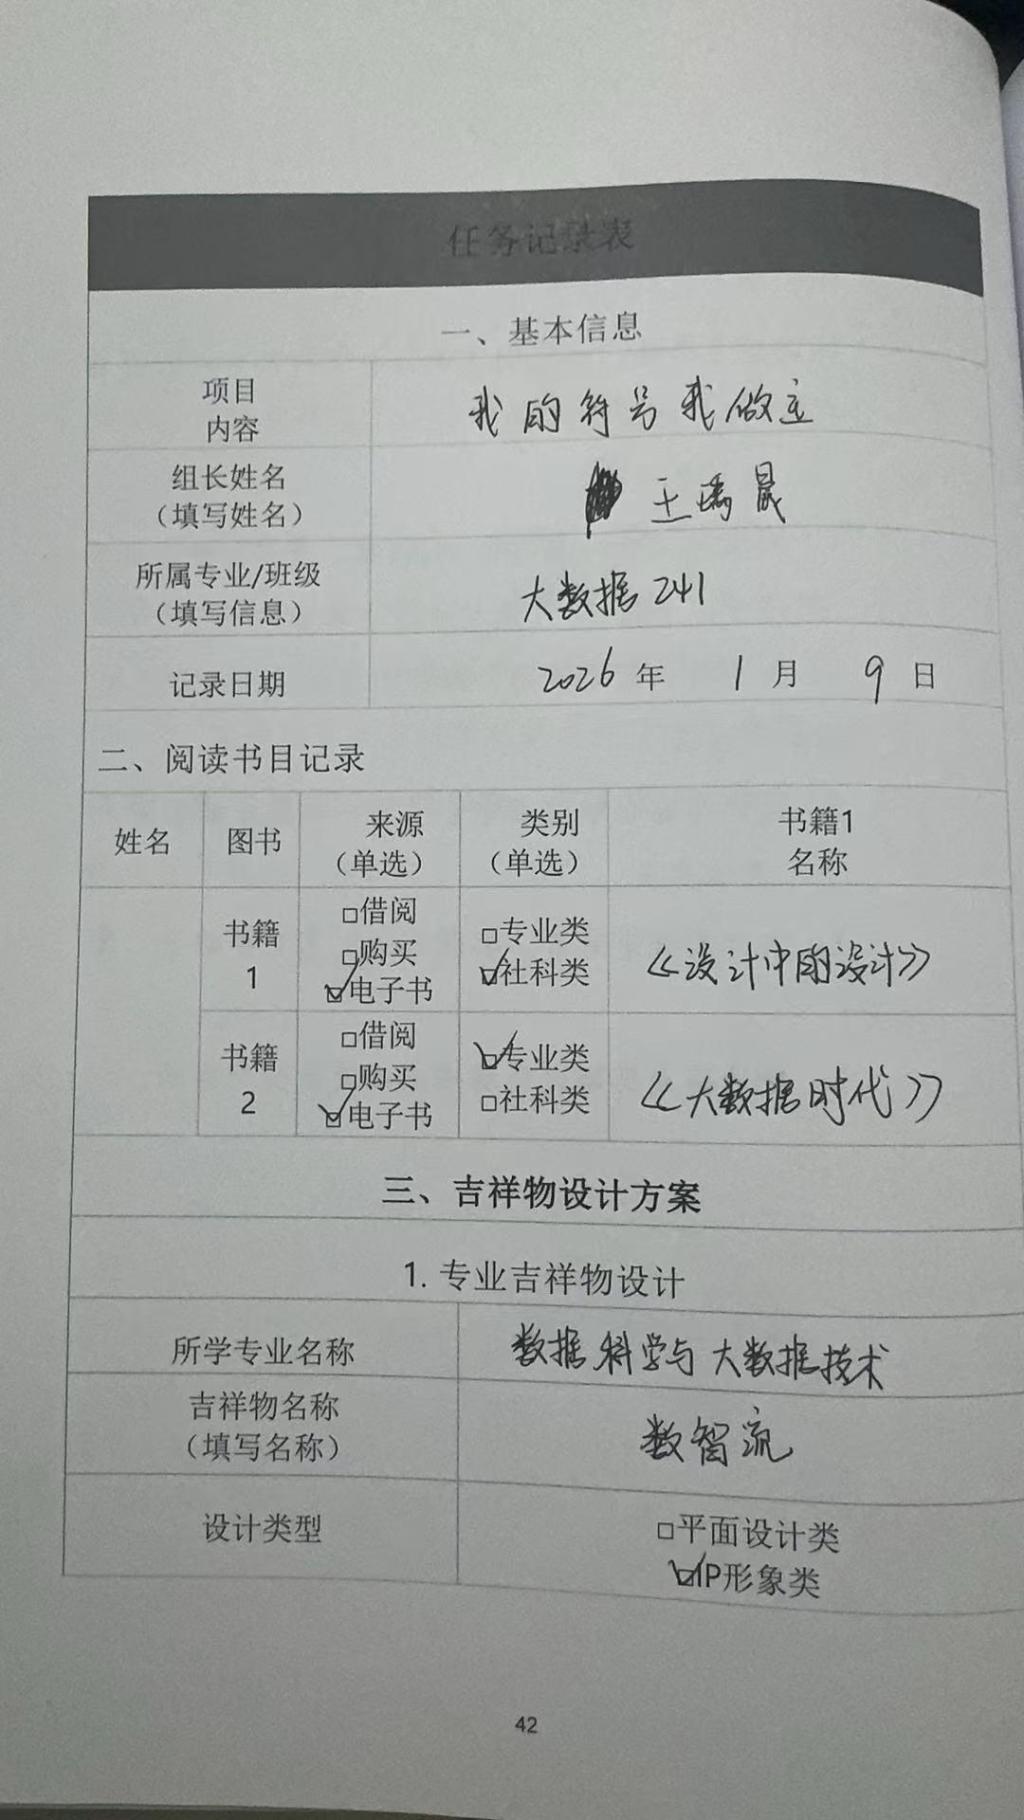 任务记录表
一、基本信息
项目
内容
我的符号我做主
组长姓名
（填写姓名）
王
晟
所属专业/班级
（填写信息）
大数据241
记录日期
2026 年 1 月 9 日
二、阅读书目记录
姓名 图书 来源 类别 书籍1
（单选） （单选） 名称
书籍
1
□借阅
□购买
☑电子书
□专业类
☑社科类
《设计中的设计》
书籍
2
□借阅
□购买
☑电子书
☑专业类
□社科类
《大数据时代》
三、吉祥物设计方案
1. 专业吉祥物设计
所学专业名称
数据科学与大数据技术
吉祥物名称
（填写名称）
数智流
设计类型
□平面设计类
☑IP形象类
42